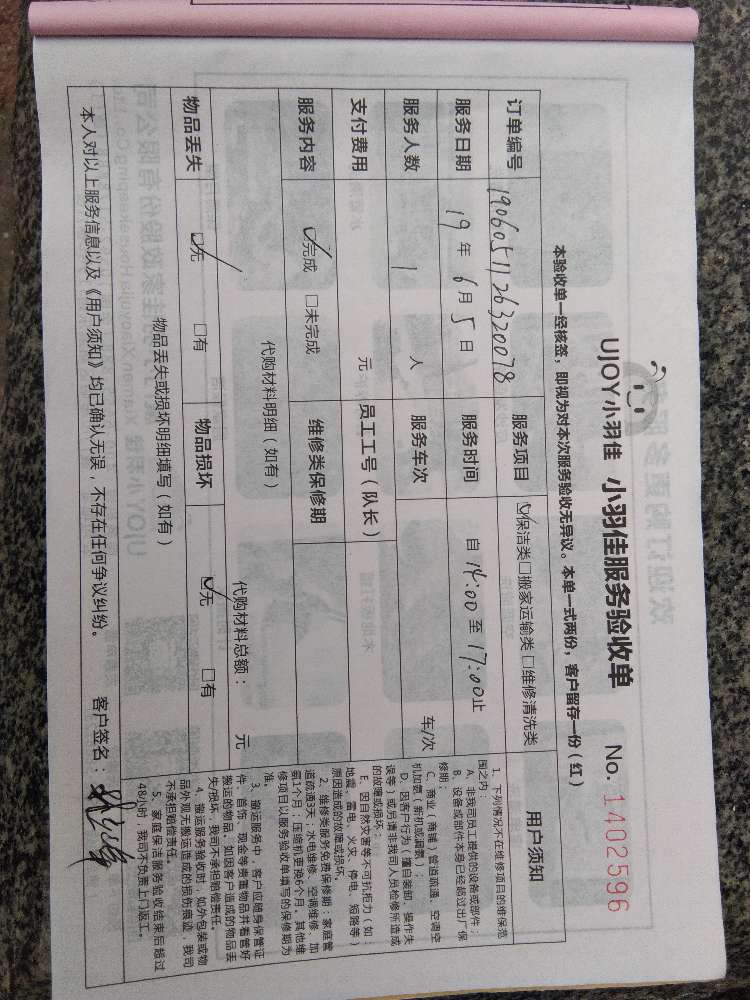 UJOY小羽佳 小羽佳服务验收单 No. 1402596
本验收单一经核签，即视为对本次服务验收无异议。本单一式两份，客户留存一份（红）
订单编号 1906051126320078 服务项目 ☑保洁类□搬家运输类□维修清洗类
服务日期 19年6月5日 服务时间 自14:00至17:00止
服务人数 1 人 服务车次 车/次
支付费用 元 员工工号（队长）
服务内容 ☑完成 □未完成 维修类保修期
代购材料明细（如有） 代购材料总额： 元
物品丢失 ☑无 □有 物品损坏 ☑无 □有
物品丢失或损坏明细填写（如有）
本人对以上服务信息以及《用户须知》均已确认无误，不存在任何争议纠纷。 客户签名：
用户须知
1、下列情况不在维修项目的维保范
围之内：
A、非我司员工提供的设备或部件；
B、设备或部件本身已经超过出厂保
修期；
C、商业（商铺）管道疏通、空调空
机加氨（新机或漏氨）；
D、因客户行为（擅自装卸、操作失
误等）或另请非我司人员检修所造成
的故障或损坏；
E、因自然灾害等不可抗拒力（如：
地震、雷电、火灾、停电、短路等）
原因造成的故障或损坏。
2、维修类服务免费保修期：家庭管
道疏通3天；水电维修、空调维修、加
氨1个月；压缩机更换6个月。其他维
修项目以服务验收单填写的保修期为
准。
3、搬运服务中，客户应随身保管证
件、首饰、现金等贵重物品并看管好
搬运的物品，如因客户造成的物品丢
失/损坏，我司不承担赔偿责任。
4、搬运服务验收时，如外包装或物
品外观无搬运造成的损伤痕迹，我司
不承担赔偿责任。
5、家庭保洁服务验收结束后超过
48小时，我司不负责上门返工。